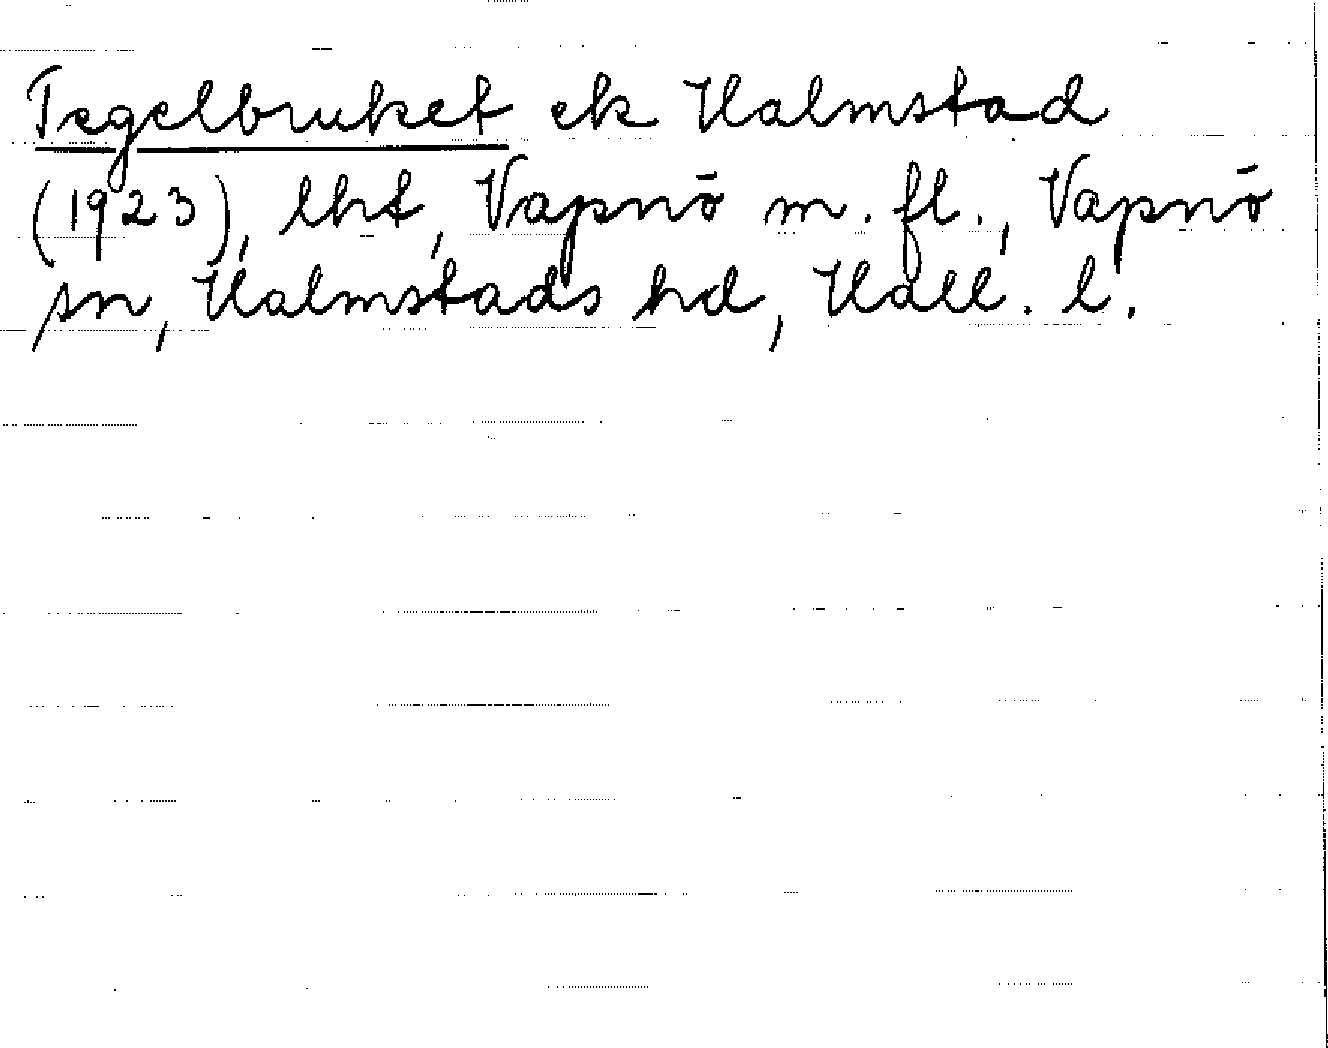 Tegelbruket ek Halmstad
(1923), lht, Vapnö m. fl., Vapnö
sn, Halmstads hd, Hall. l.